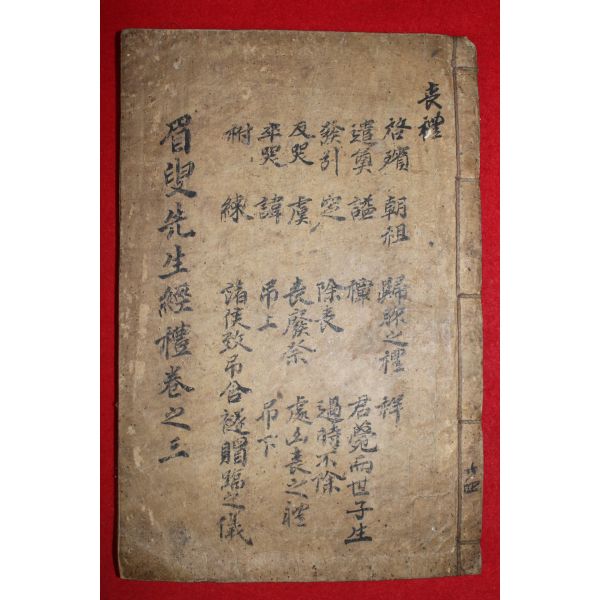 喪禮
啓殯 朝祖 歸賵之禮 祥
遣奠 謚 禫 君薨而世子生
發引 窆 除喪 過時不除
反哭 虞 喪廢祭 處凶喪之禮
卒哭 諱 吊上 吊下
祔 練 諸侯致吊含襚賵臨之儀
眉叟先生經禮卷之三